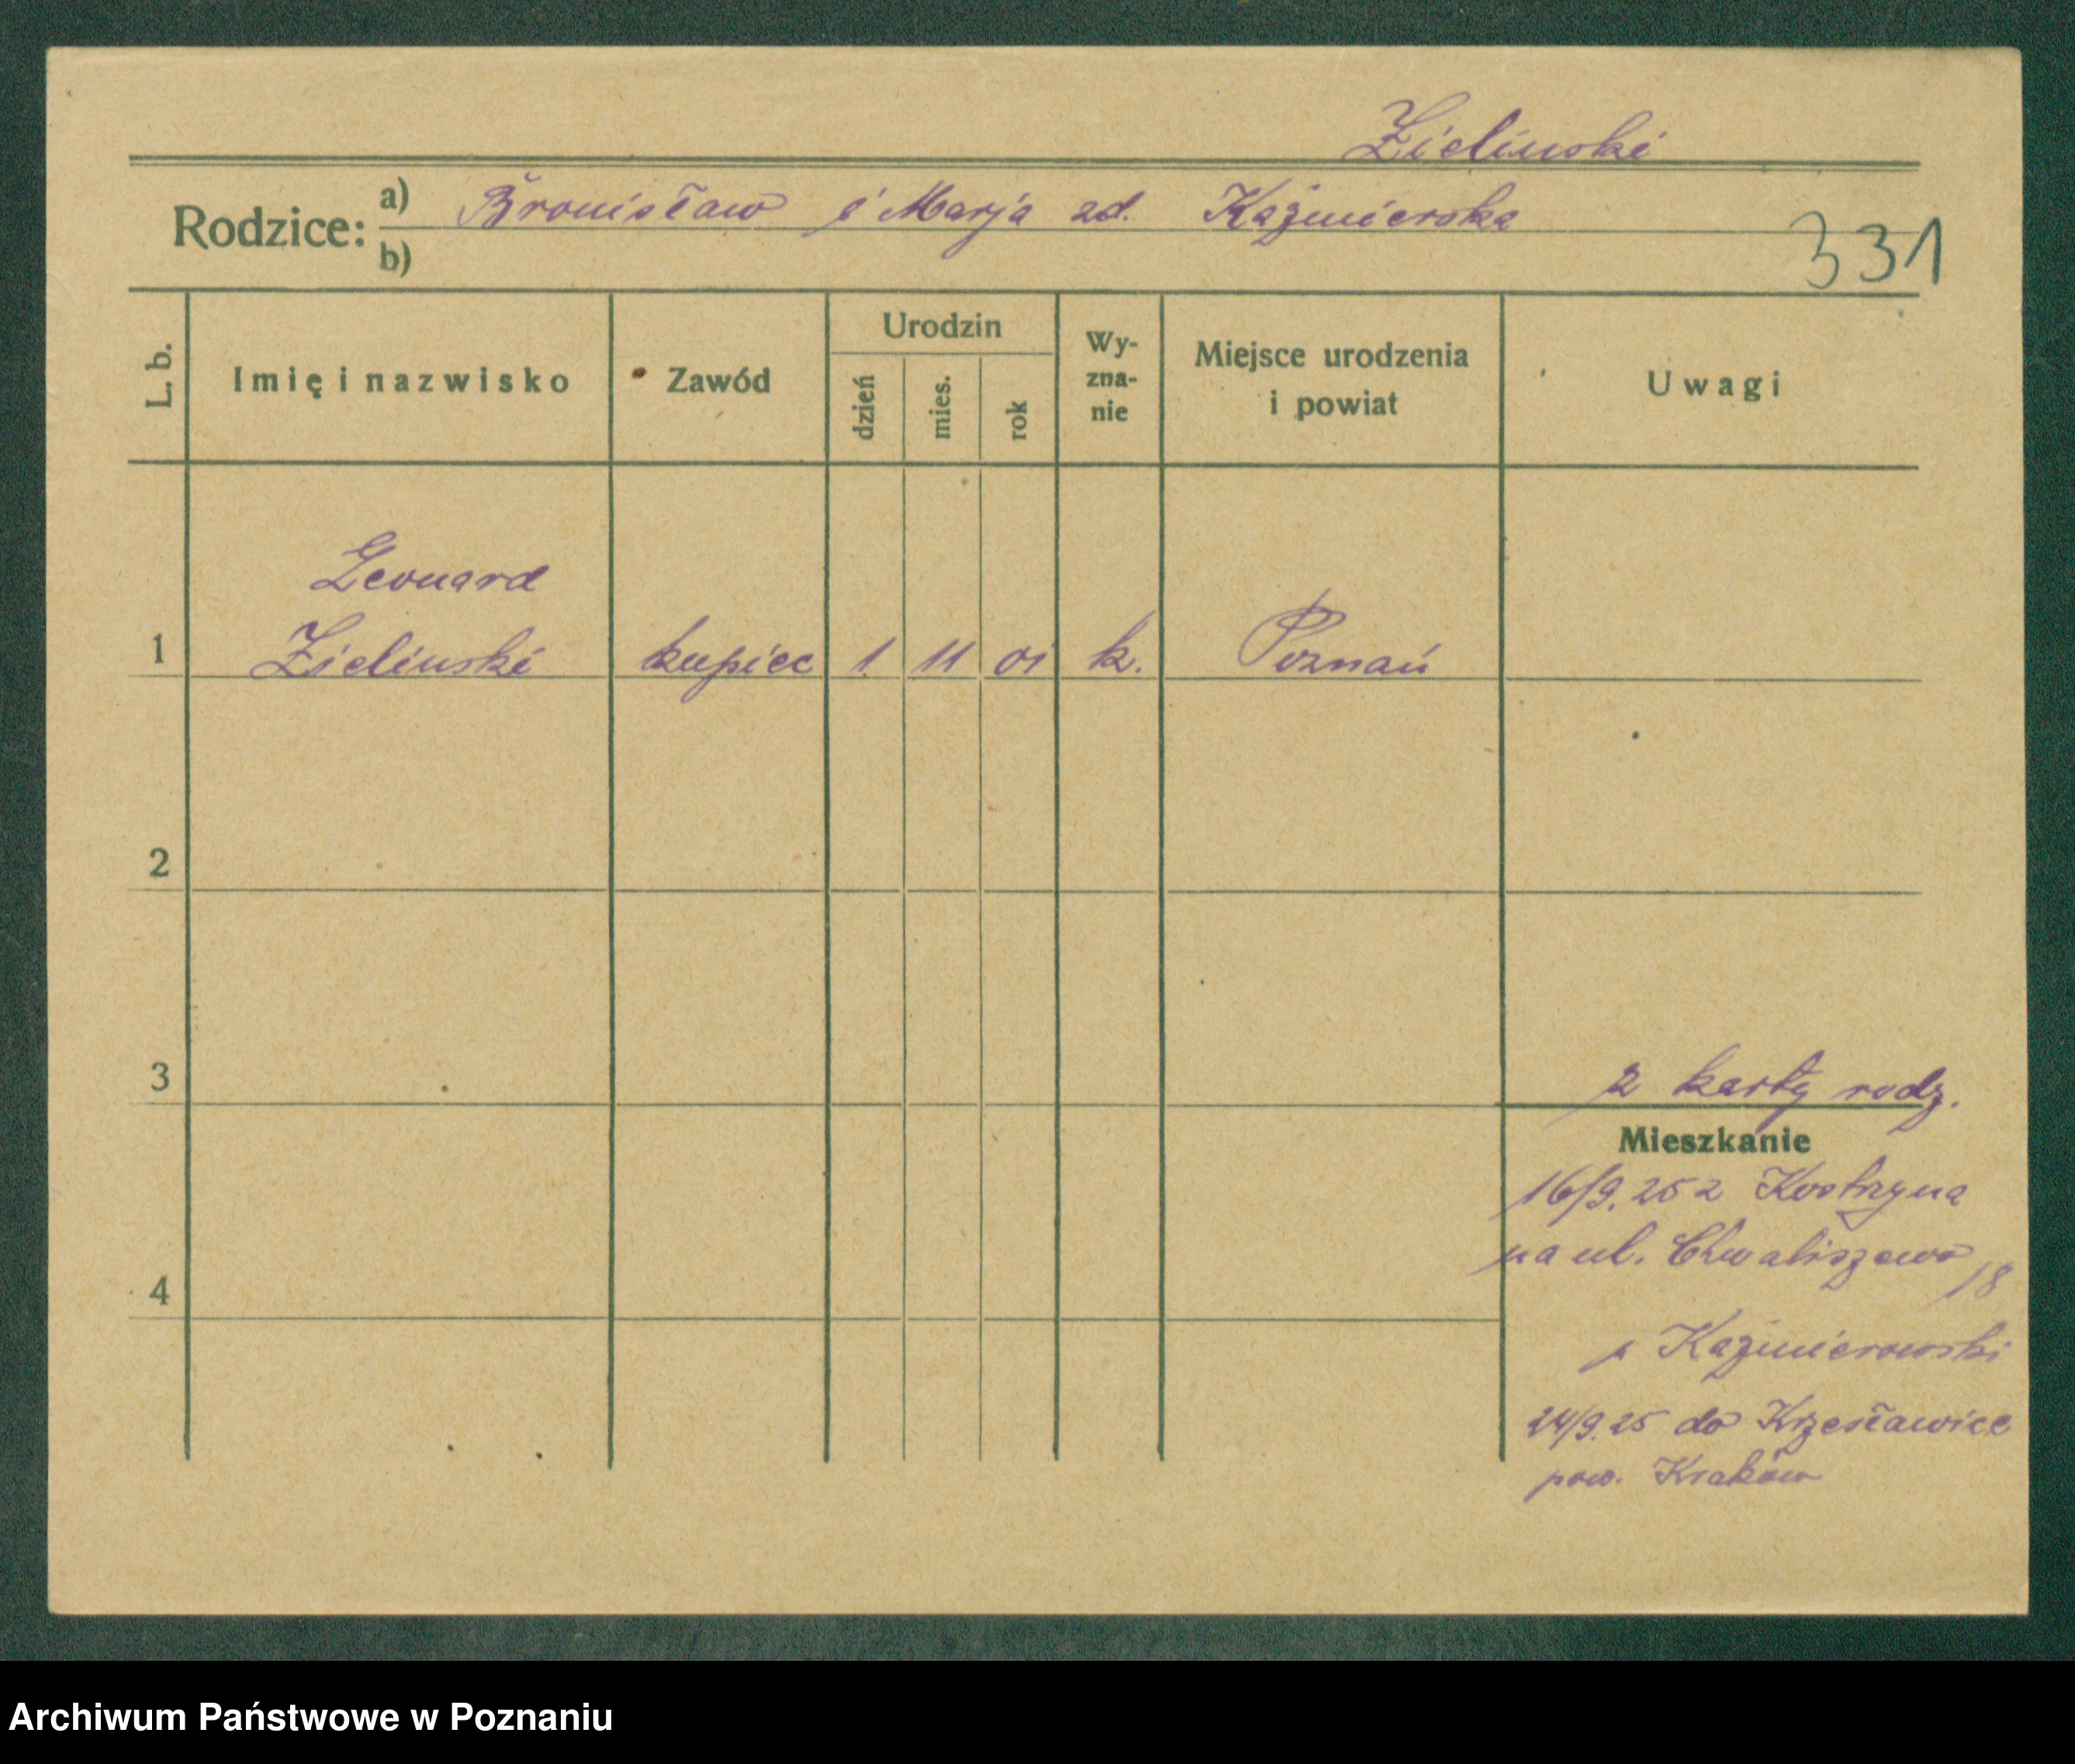 Zieliński
Rodzice: a) Bronisław i Marja zd. Kaźmierska
b)
331
L. b.
Imię i nazwisko
Zawód
Urodzin
dzień
mies.
rok
Wy-
zna-
nie
Miejsce urodzenia
i powiat
Uwagi
Leonard
1 Zieliński kupiec 1 11 01 k. Poznań
2
3
2 karty rodz.
Mieszkanie
16/9.25 z Kostrzyna
na ul. Chwaliszewo 18
4
p Kaźmierowski
24/9.25 do Krzesławice
pow. Kraków
Archiwum Państwowe w Poznaniu